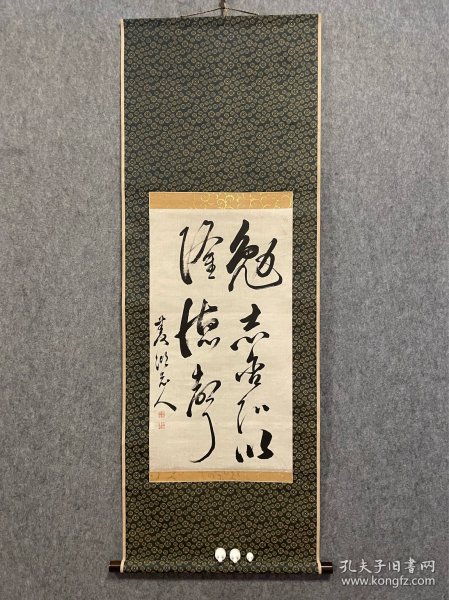 勉志含弘以
隆徳聲
菱湖老人
孔夫子旧书网
www.kongfz.com